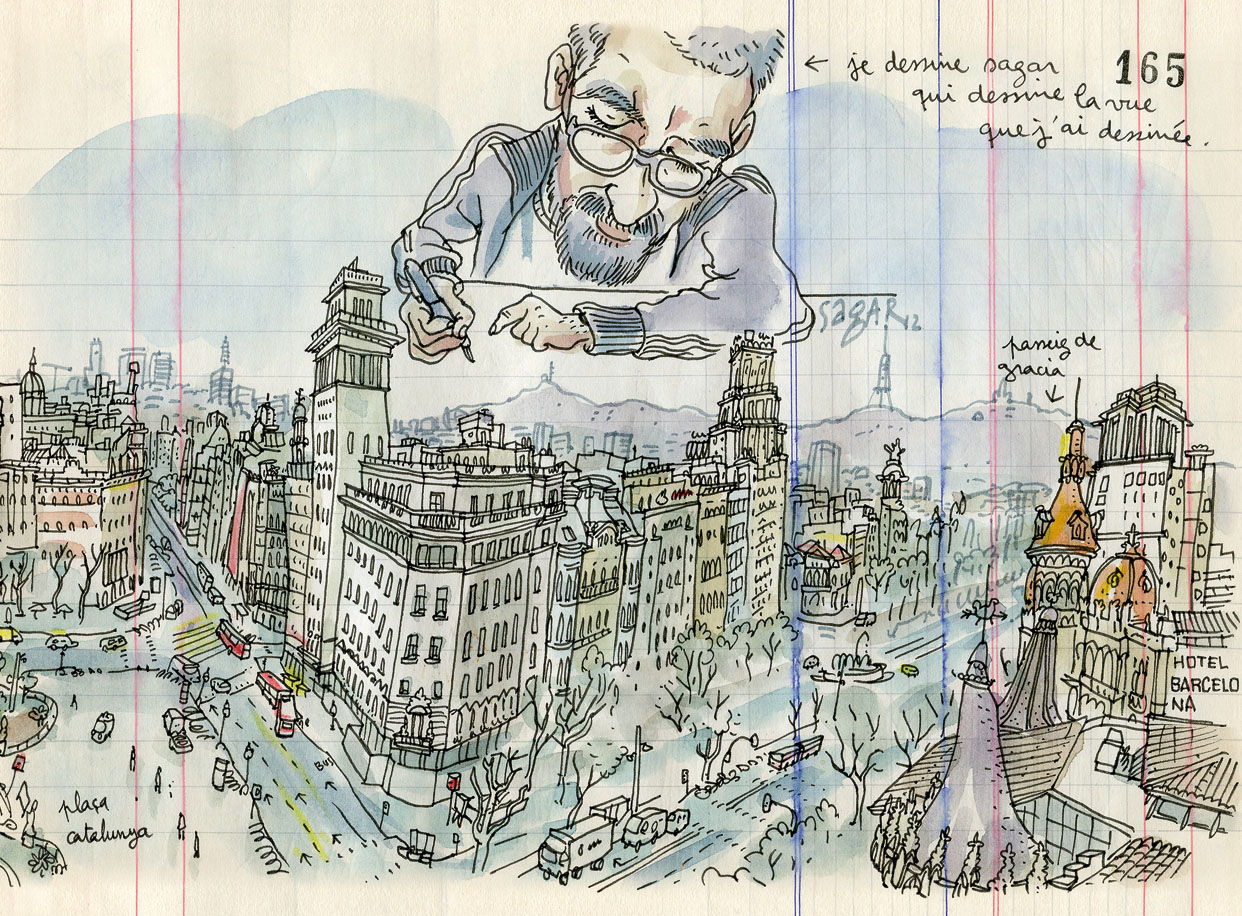 ← je dessine sagar
165
qui dessine la vue
que j'ai dessinée.
sagar 12
passeig de
gracia
HOTEL
BARCELO
NA
BUS
plaça
catalunya